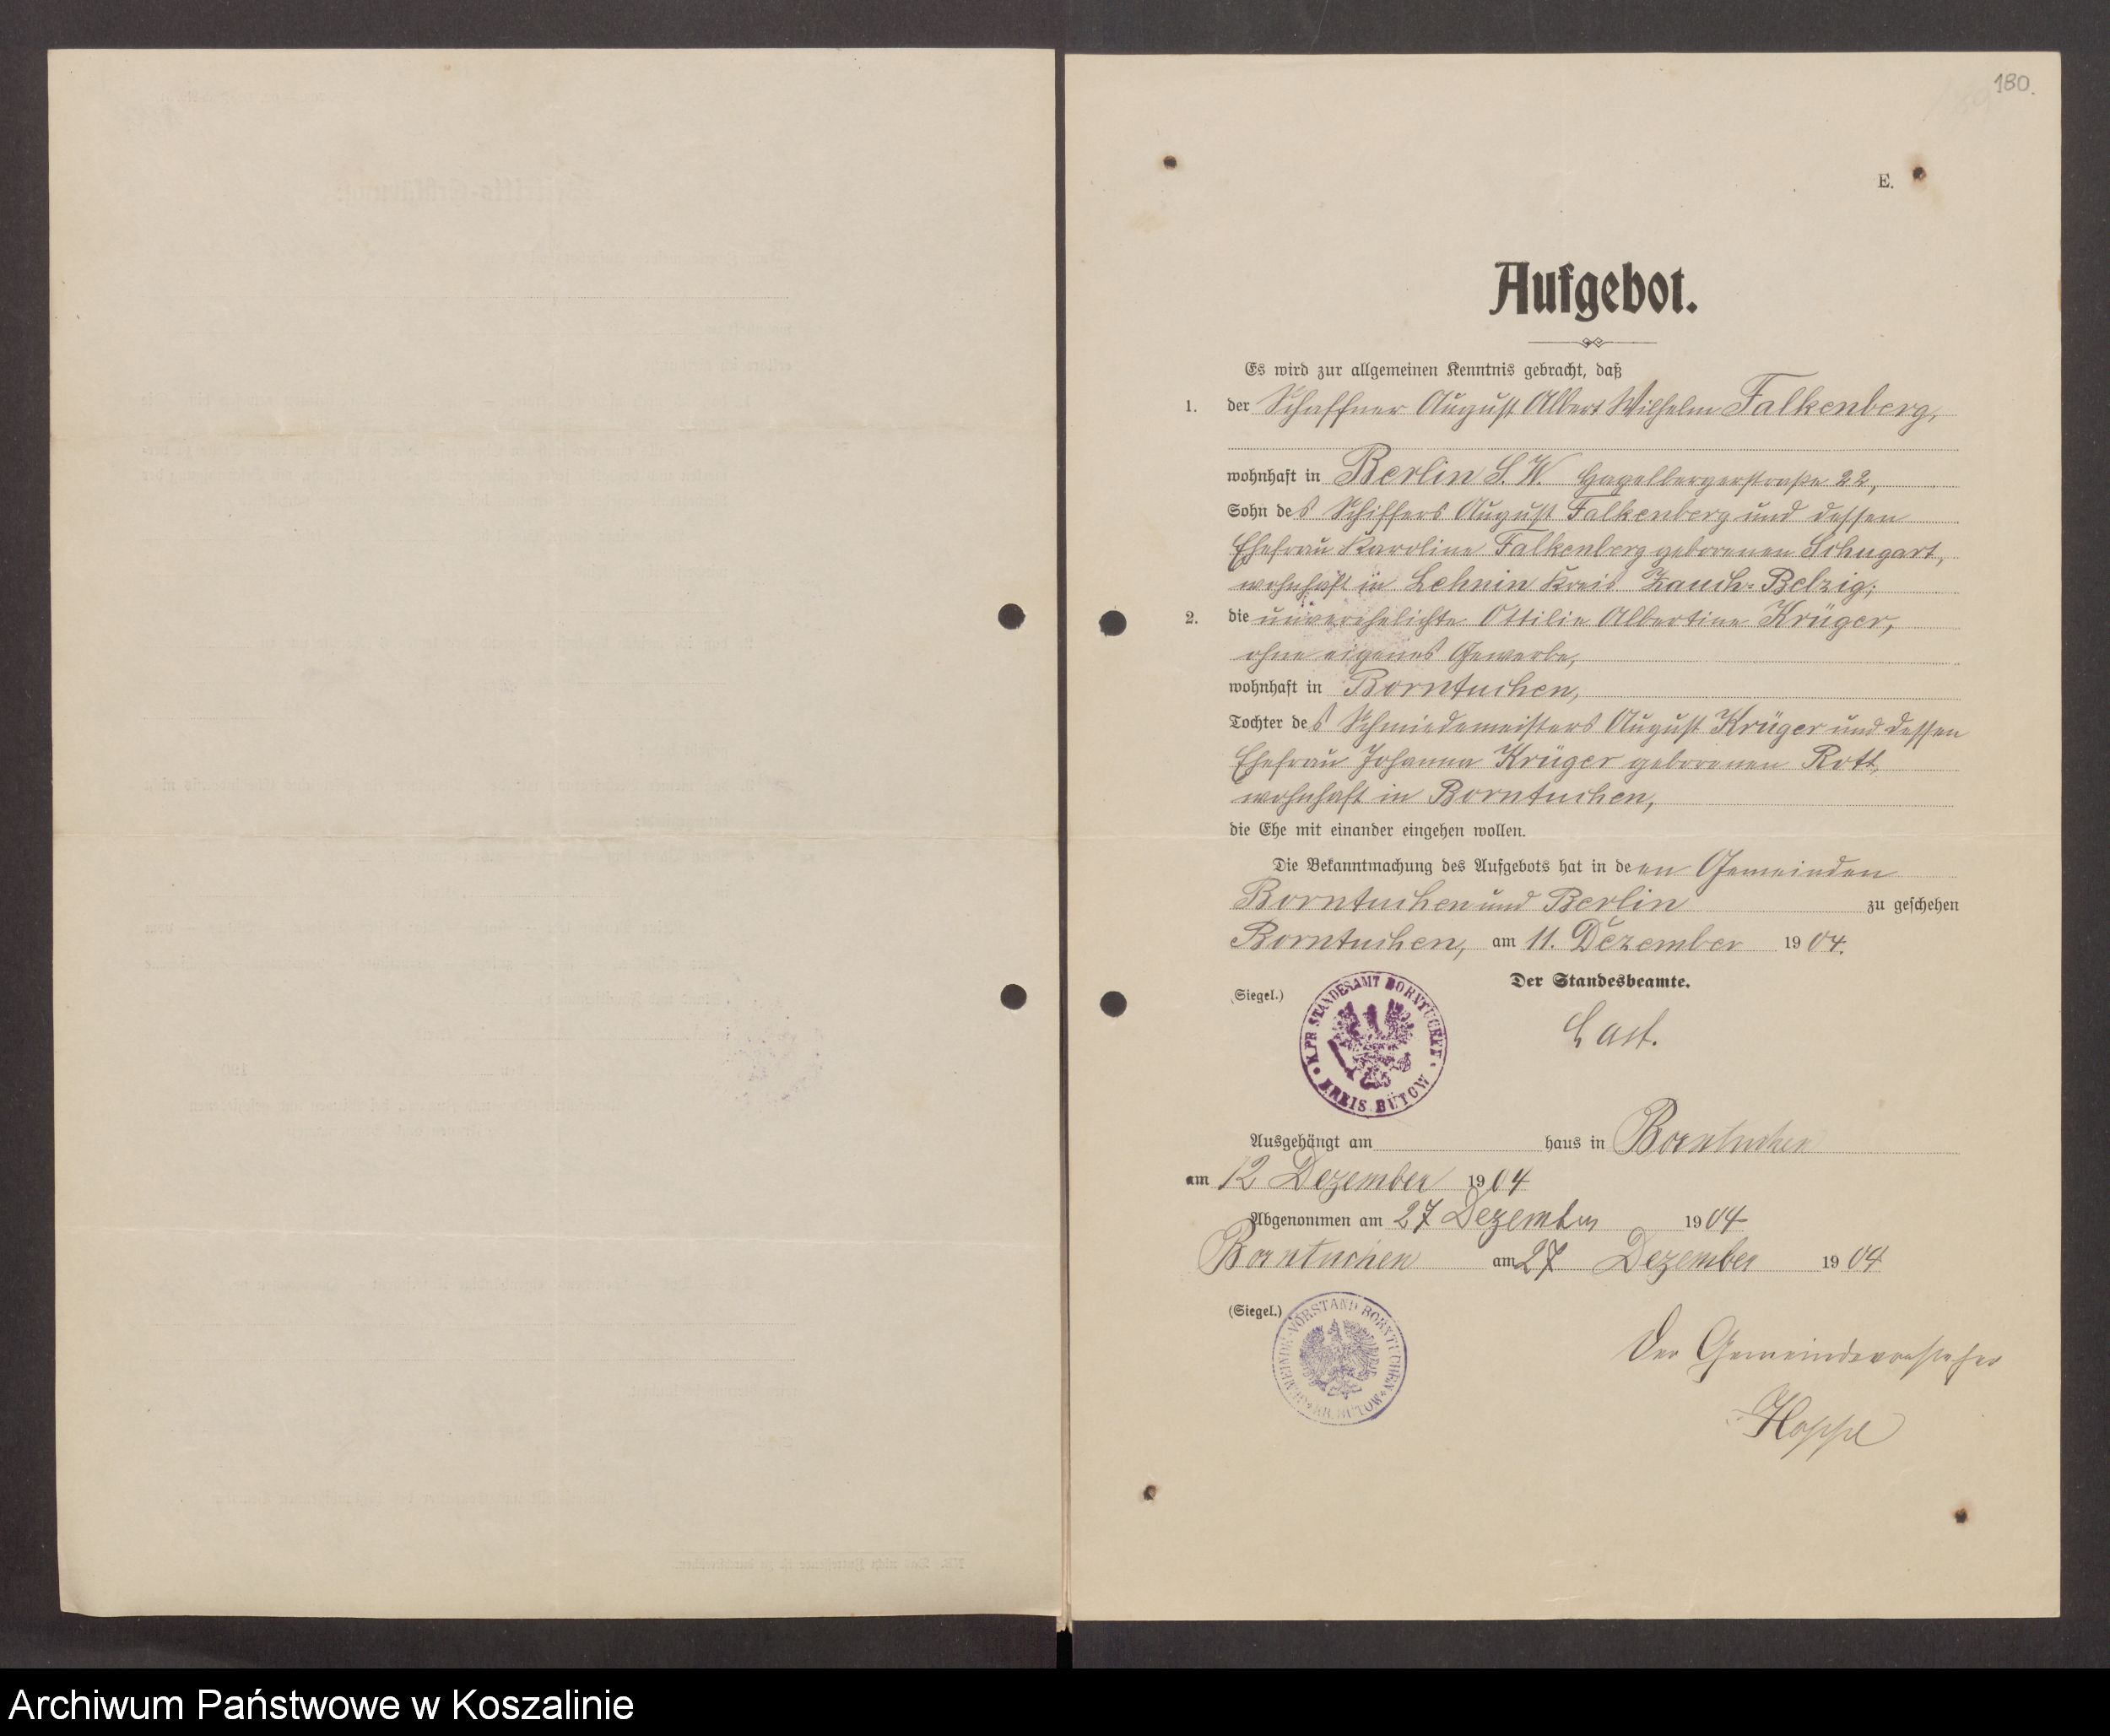 180.
E.
Aufgebot.
Es wird zur allgemeinen Kenntnis gebracht, daß
1. der Schaffner August Albert Wilhelm Falkenberg,
wohnhaft in Berlin S. W. Hagelbergerstraße 22,
Sohn des Schiffers August Falkenberg und dessen
Ehefrau Karoline Falkenberg geborenen
wohnhaft in Lehnin Kreis Zauch-Belzig;
2. die unverehelichte Ottilie Albertine Krüger,
ohne eigenes Gewerbe,
wohnhaft in Borntuchen,
Tochter des Schmiedemeisters August Krüger und dessen
Ehefrau Johanna Krüger geborenen Rott,
wohnhaft in Borntuchen,
die Ehe mit einander eingehen wollen.
Die Bekanntmachung des Aufgebots hat in deen Gemeinden
Borntuchen und Berlin zu geschehen
Borntuchen, am 11. Dezember 1904.
(Siegel.)
Der Standesbeamte.
K. PR STANDESAMT BORNTUCHEN • KREIS BÜTOW •
Ausgehängt am haus in Borntuchen
am 12 Dezember 1904
Abgenommen am 27 Dezember 1904
Borntuchen am 27 Dezember 1904
(Siegel.)
GEMEINDE-VORSTAND BORNTUCHEN * KR. BÜTOW *
Der Gemeindevorsteher
Hoppe
Archiwum Państwowe w Koszalinie